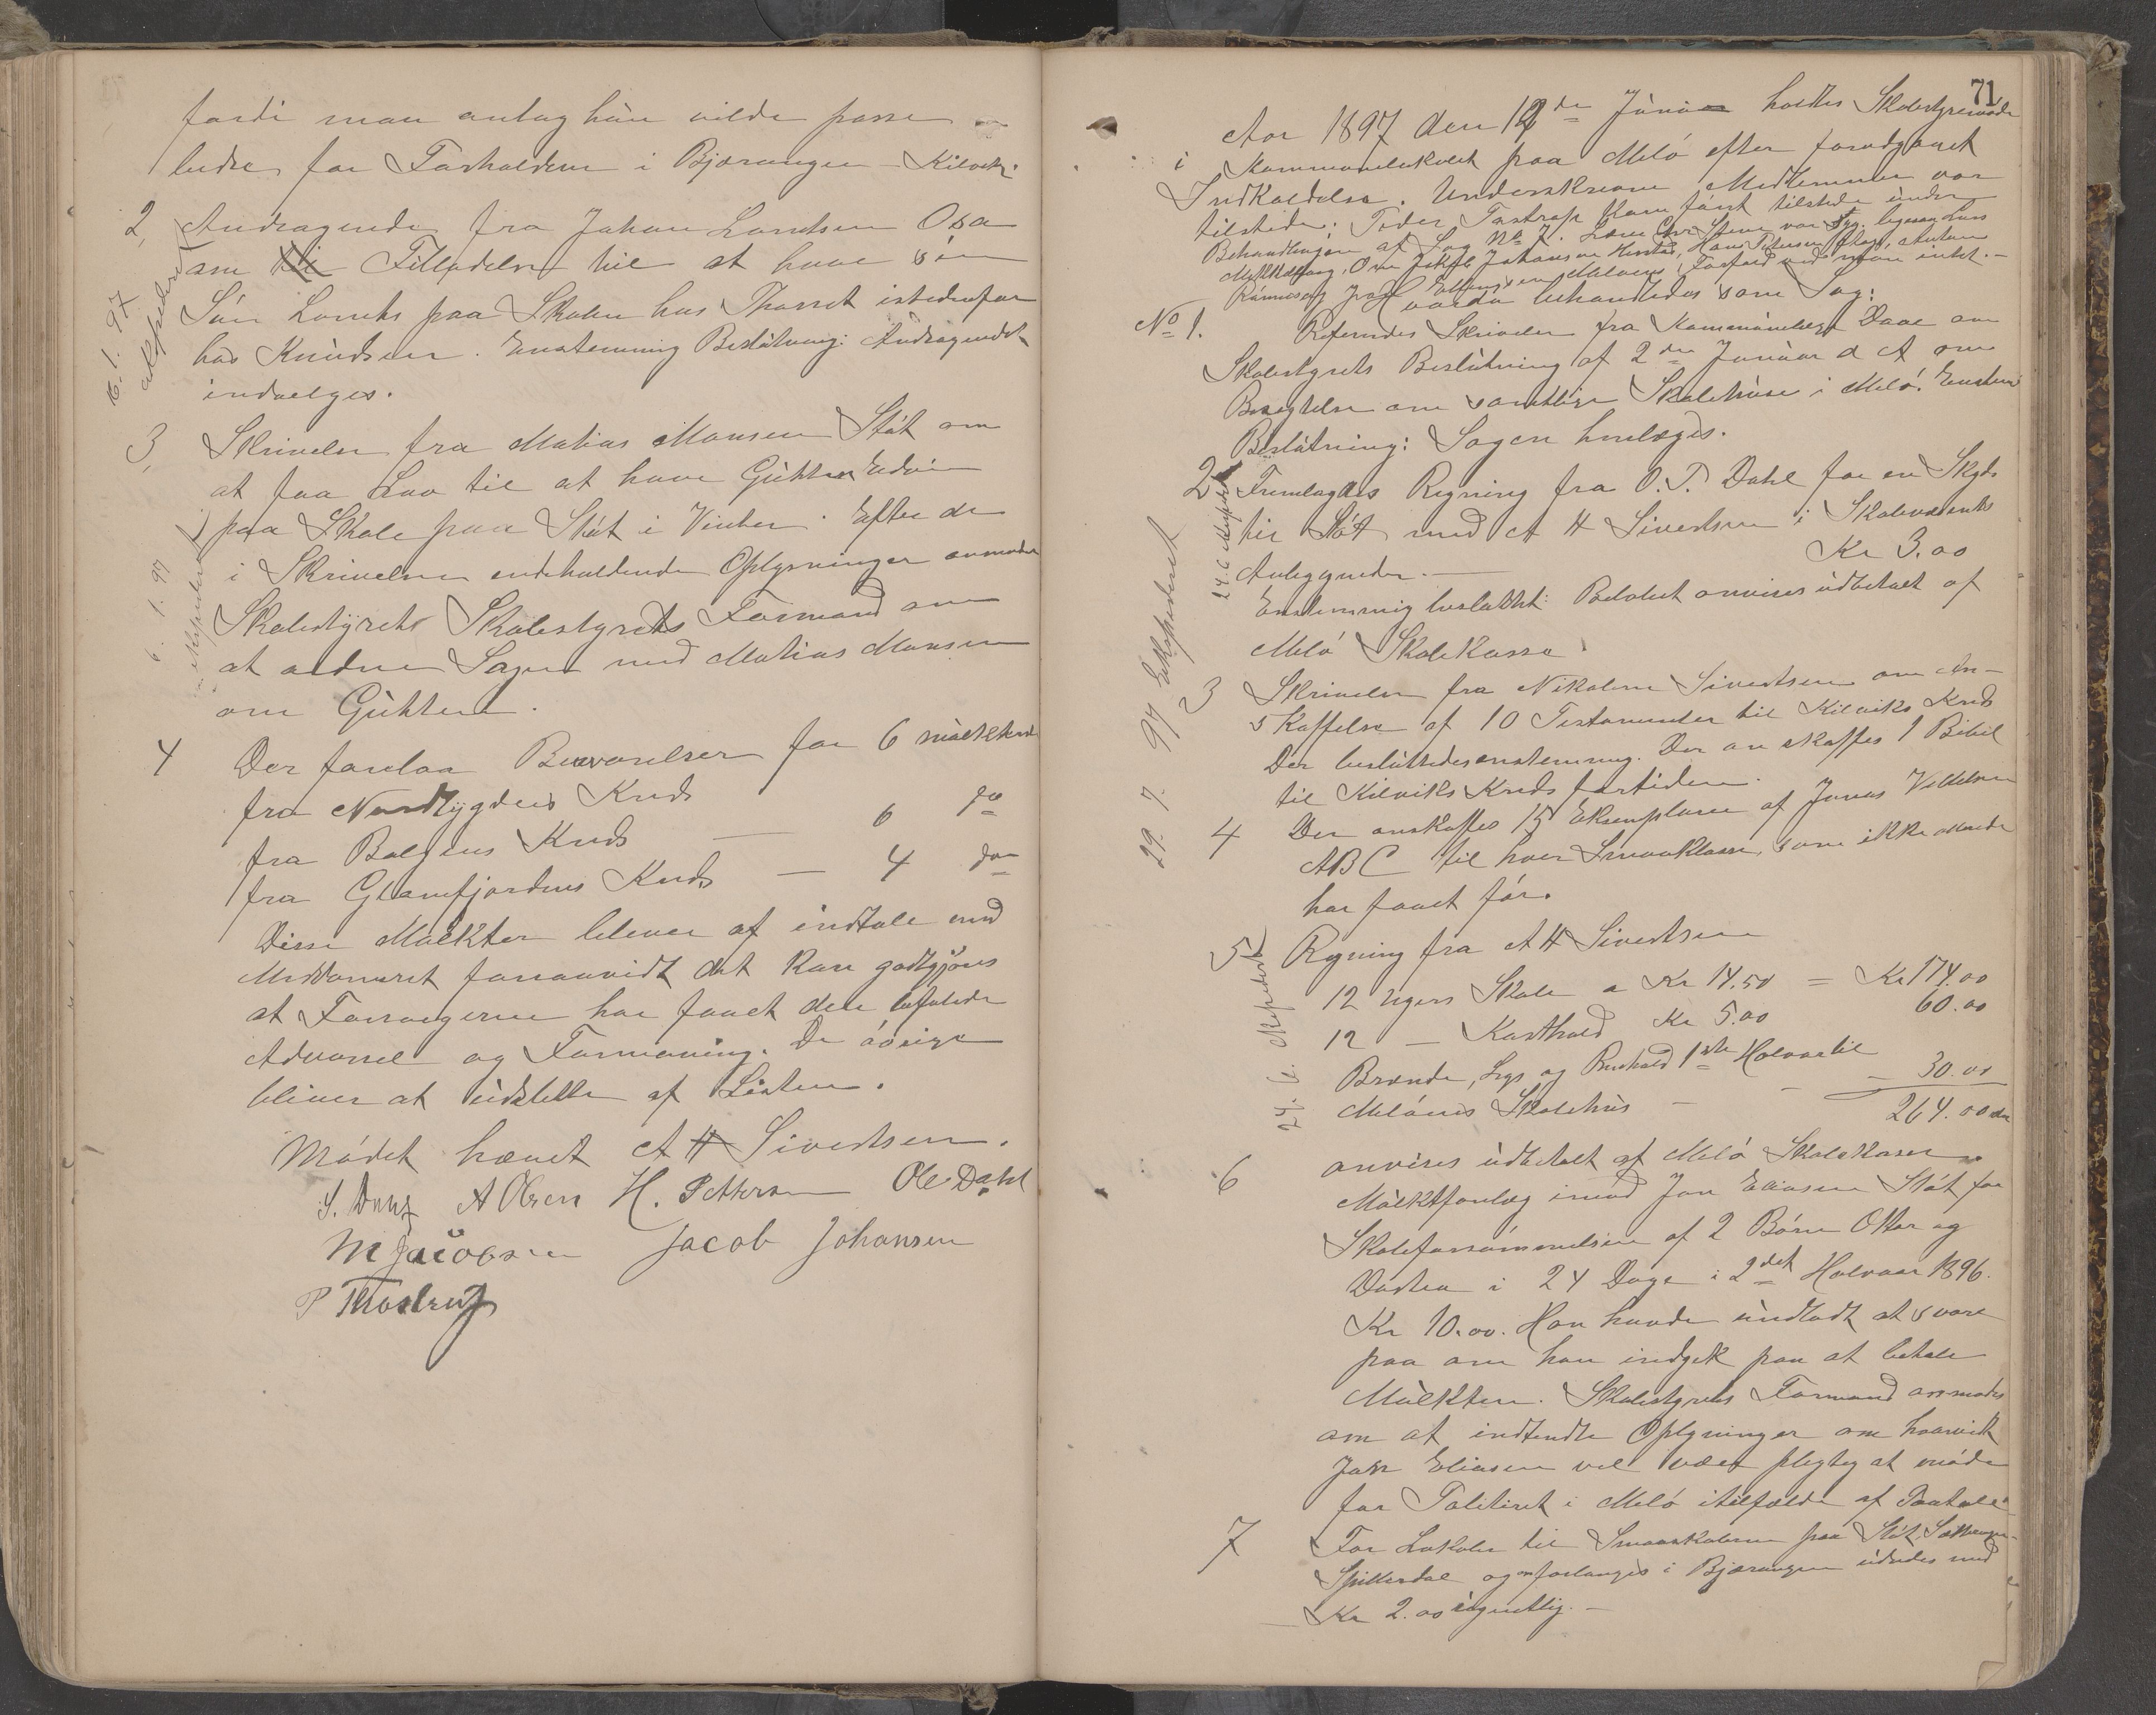 fordi man antog hun vilde passe
bedre for Forholdene i Bjærangen - Kilvik.
2, Andragende fra Johan Lorntsen Osa
om til Tilladelse til at have sin
Søn Lornts paa Skolen hos Thorset istedenfor
hos Knudsen. Enstemmig Beslutning: Andragendet
indvilges.
16. 1. 97. ekspederet
3, Skrivelse fra Matias Monsen Støt om
at faa Lov til at have Gutten Edvin
paa Skole paa Støt i Vinter. Efter de
i Skrivelsen indeholdende Oplysninger anmoder
Skolestyret Skolestyrets Formand om
at ordne Sagen med Matias Monsen
om Gutten.
6. 1. 97 ekspederet
4 Der forelaa Besvarelser for 6 mulkterede
fra Nordbygdens Kreds
fra Bolgens Kreds — 6 do
fra Glomfjordens Kreds — 4 do
Disse Mulkter bliver at indtale med
Mindømmet forsaavidt det kan godtgjøres
at Forsørgerne har faaet den befalede
Advarsel og Formaning. De øvrige
bliver at udslette af Listen.
Mødet hævet A H Sivertsen.
A Olsen H. Pettersen Ole Dahl
M Jacobsen Jacob Johansen
P Thostrup
71
Aar 1897 den 12de Juni holdtes Skolestyremøde
i Kommunelokalet paa Melø efter forudgaaet
Indkaldelse. Underskrevne Medlemmer var
tilstede: Peder Tostrup kom først tilstede under
Behandlingen af Sag No 7. var Syg. ligesaa
Johansen Hans Petersen Anton
Forfald ved man intet. -
Hvorda behandledes som Sag:
No 1. Refereredes Skrivelse fra Kommunelæge Daae om
Skolestyrets Beslutning af 2den Januar d A om
Besigtelse om samtlige Skolehuse i Melø. Enstem
Beslutning: Sagen henlægges.
2 Fremlagdes Regning fra O. P. Dahl for en Skyds
til Støt med A H Sivertsen i Skolevæsenets
Anliggender. — Kr 3.00
Enstemmig besluttet: Beløbet anvises udbetalt af
Melø Skolekasse
24.6 ekspederet
3 Skrivelse fra Nikoline Sivertsen om An-
skaffelse af 10 Testamenter til Kilviks Kreds
Der besluttedes enstemmig. Der anskaffes 1 Bibel
til Kilviks Kreds fortiden.
29. 7. 97 Ekspederet
4 Der anskaffes 15 Eksemplarer af Jonas Vellesen
ABC til hver Smaaklasse, som ikke allerede
har faaet før.
5 Regning fra A H Sivertsen
12 Ugers Skole a Kr 14.50 = Kr 174.00
12 — Kosthold Kr 5.00 60.00
Brænde, Lys og Renhold 1ste Halvaar til
Meløens Skolehus — — 30.00
264.00
24. 6. ekspederet
anvises udbetalt af Melø Skolekasse
6 Mulktforlæg imod Jon Eliasen Støt for
Skoleforsømmelsen af 2 Børn Ottar og
i 24 Dage i 2det Halvaar 1896.
Kr 10.00. Han havde undladt at svare
paa om han indgik paa at betale
Mulkten. Skolestyrets Formand anmodes
om at indhente Oplysninger om hvorvidt
Jon Eliasen vil være pligtig at møde
for Politiret i Melø i tilfælde af Paatale.
7 For Lokaler til Smaaskolerne paa Støt,
Spildredal og om forlanges i Bjærangen udredes med
Kr 2.00 ugentlig. —